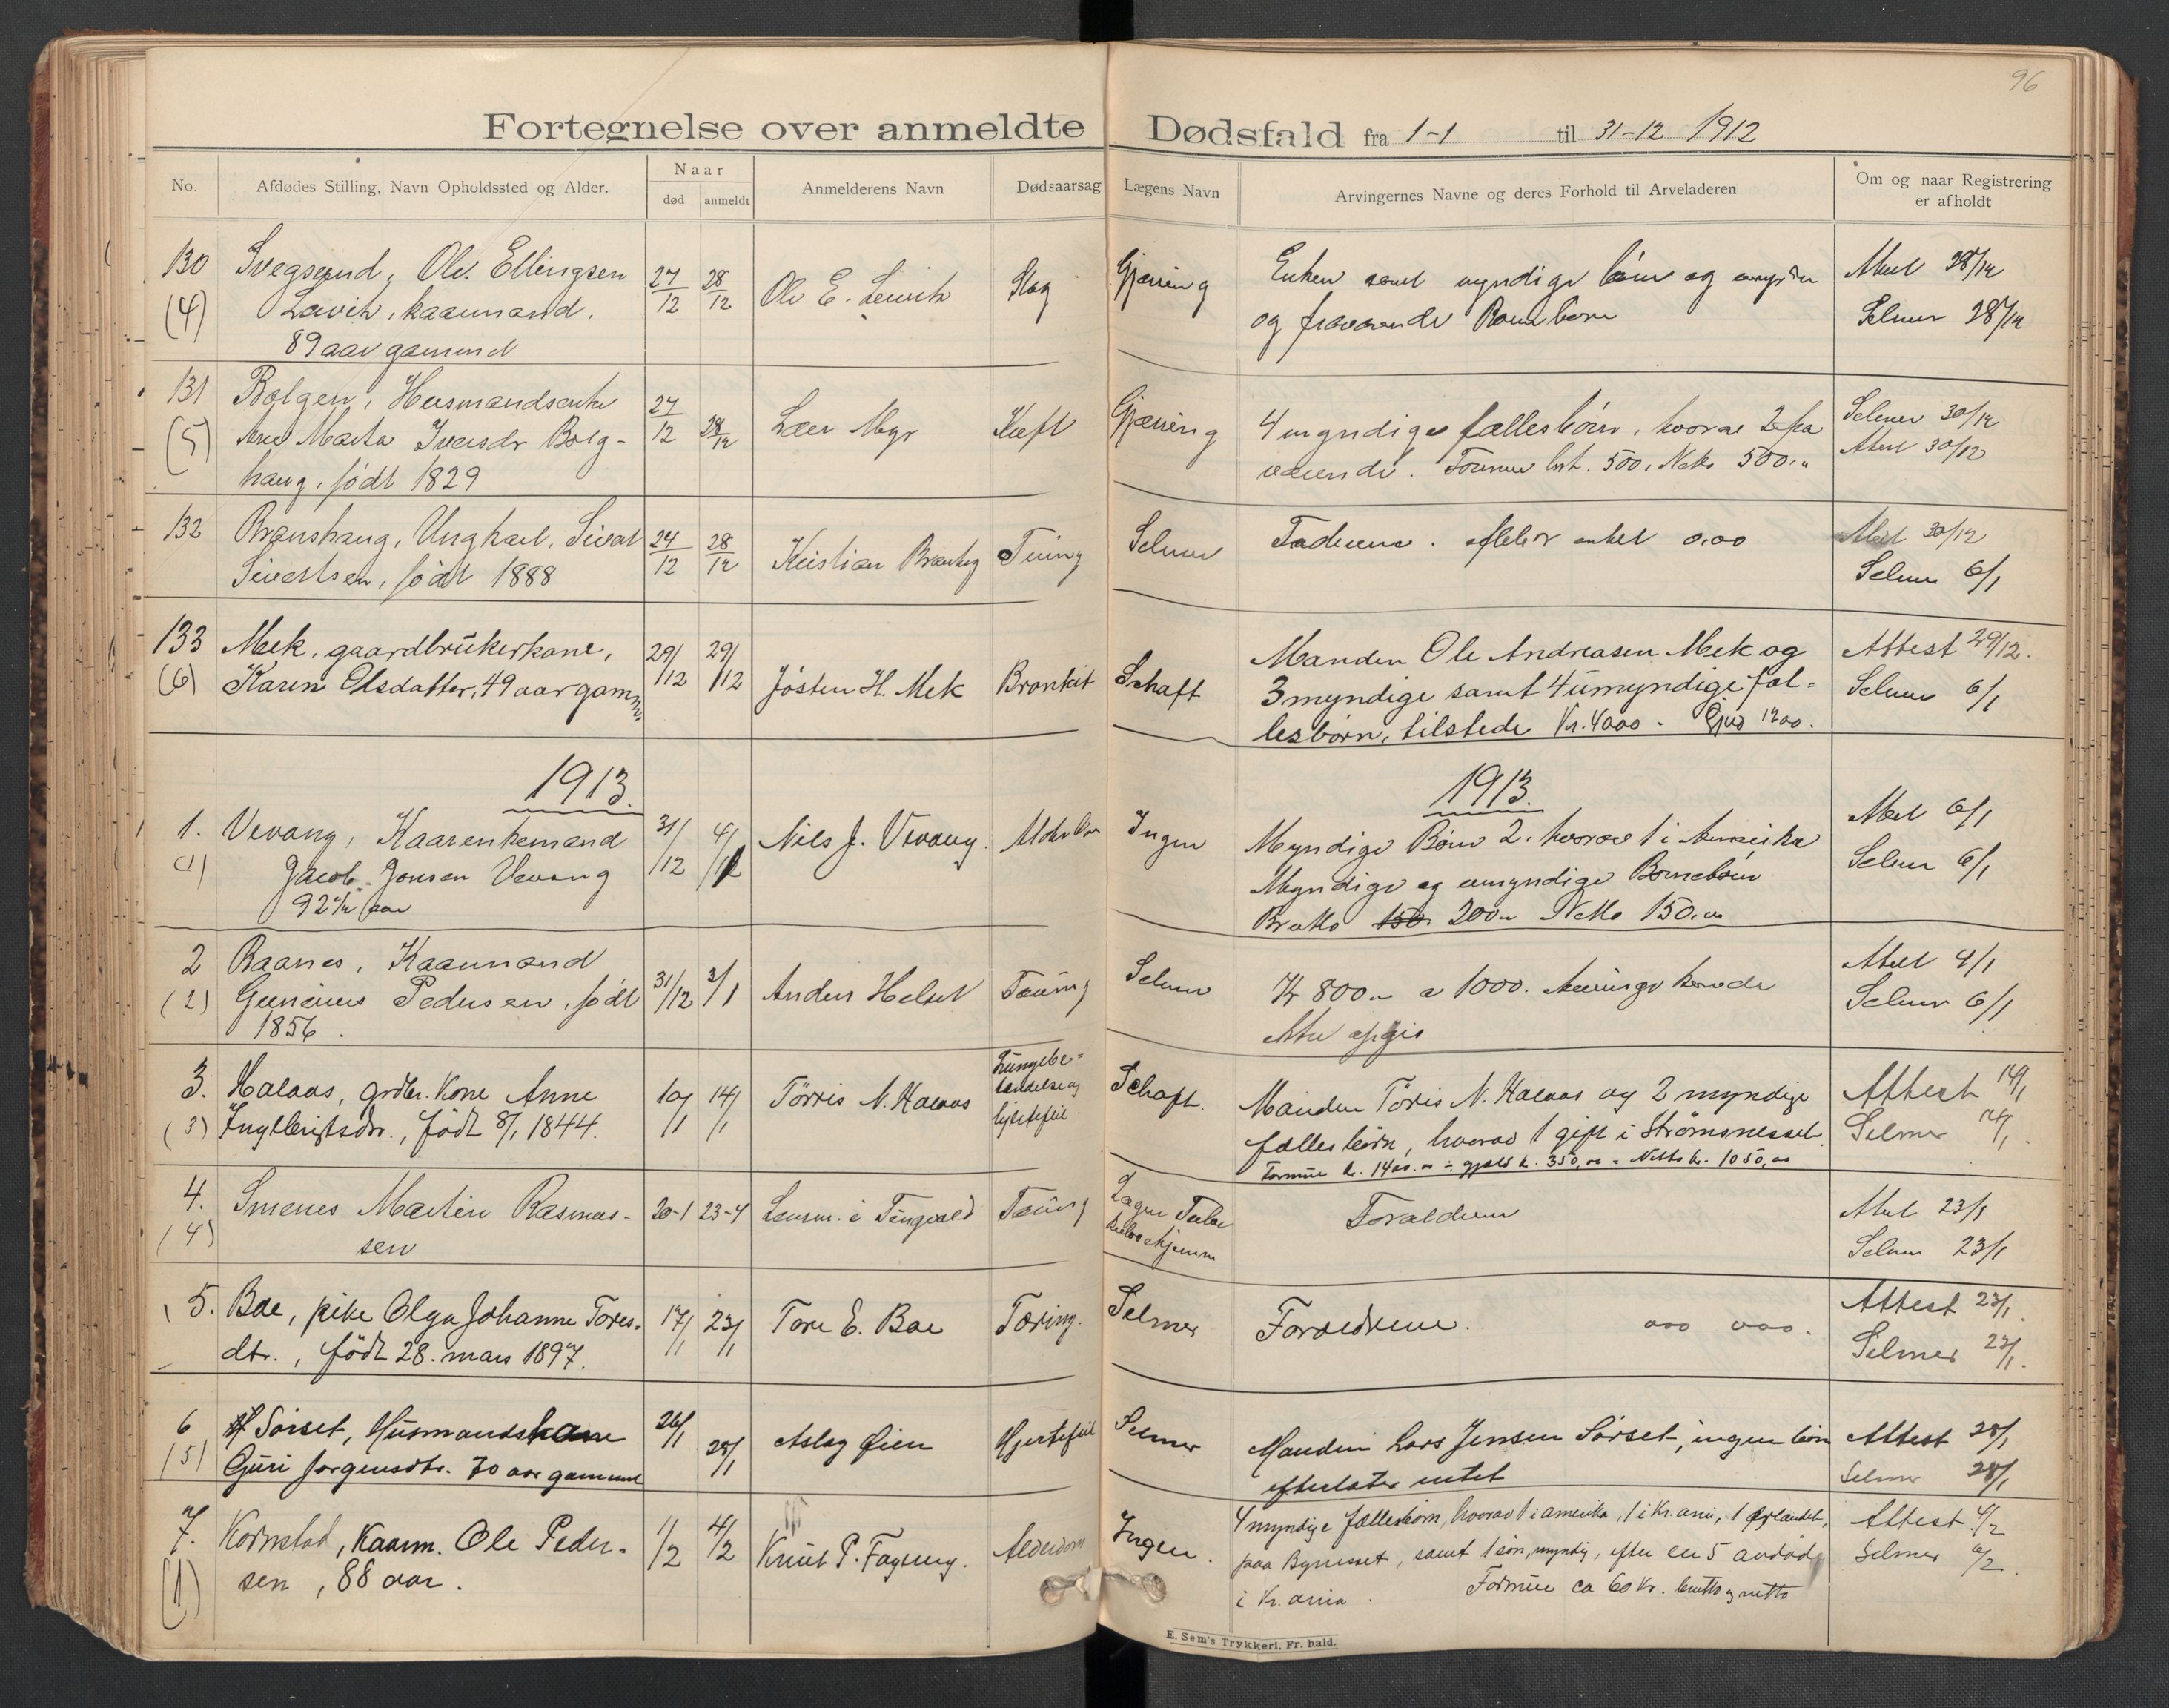 96
Fortegnelse over anmeldte Dødsfald fra 1-1 til 31-12 1912
No.
Afdødes Stilling, Navn Opholdssted og Alder.
Naar
død
anmeldt
Anmelderens Navn
Dødsaarsag
Lægens Navn
Arvingernes Navne og deres Forhold til Arveladeren
Om og naar Registrering
er afholdt
130
(4)
Ole Ellingsen
kaarmand.
89 aar gammel
27/12
28/12
Ole E.
Slag
Gjøring
Enken samt myndige børn og
og fraværende Barnebørn
28/12
Selmer 28/12
131
(5)
Bolgen, Husmandsenke
Ane Marta Iversdr Bolg-
haug, født 1829
27/12
28/12
Lars Myr
Kræft
Gjøring
4 myndige fællesbørn, hvorav 2 fra
værende. Formue brt. 500, Netto 500.
Selmer 30/12
Attest 30/12
132
Brønshaug, Ungkarl, Sivert
Sivertsen, født 1888
24/12
28/12
Kristian
Tæring
Selmer
0.00
Attest 30/12
Selmer 6/1
133
(6)
Mek, gaardbrukerkone,
Karen Olsdatter, 49 aar gammel
29/12
29/12
Jøsten H. Mek
Bronkit
Schaft
Manden Ole Andreasen Mek og
3 myndige samt 4 umyndige fæl-
lesbørn, tilstede Kr. 4000 - Gjæld 1200.
Attest 29/12.
Selmer 6/1
1913.
1913.
1.
(1)
Vevang, Kaarenkemand
Jacob Jonsen Vevang
92 1/2 aar
31/12
4/1
Nils J. Vevang.
Alderdom
Ingen
Myndige Børn 2. hvorav 1 i Amerika
Myndige og umyndige Barnebørn
Brutto 150 200 Netto 150.
Attest 6/1
Selmer 6/1
2
(2)
Baanes, Kaarmand
Pedersen, født
1856.
31/12
3/1
Anders Helset
Tæring
Selmer
Kr 800 a 1000. Arvinger
Attest 4/1
Selmer 6/1
3.
(3)
Halaas, grdbr. Kone Anne
Ingebrigtsdr., født 8/1 1844.
10/1
14/1
Törris N. Halaas
Lungebe-
tændelse og
hjertefeil.
Schaft.
Manden Töris N. Halaas og 2 myndige
fællesbørn, hvorav 1 gift i Strømsnesset.
Formue kr. 1400.00 ÷ gjæld k. 350,00 = Netto kr. 1050,00
Attest 14/1
Selmer 14/1.
4.
(4)
Smenes Martin Rasmus-
sen
20-1
23-1
Lensm. i Tingvold
Tæring
Forældrene
Attest 23/1
Selmer 23/1
5.
Boe, pike Olga Johanne Tores-
dtr., født 28. mars 1897.
17/1
23/1
Tore E. Boe
Tæring.
Selmer
Forældrene. 000 000.
Attest 23/1.
Selmer 23/1.
6
(5)
Sørset, Husmandskone
Guri Jørgensdtr. 70 aar gammel
26/1
28/1
Aslag Øien
Hjertefeil
Selmer
Manden Lars Jensen Sørset, ingen børn
efterlater intet
Attest 28/1
Selmer 28/1
7.
(1)
Kornstad, Kaarm. Ole Peder-
sen, 88 aar.
1/2
4/2
Knut P.
Alderdom
Ingen.
4 myndige fællesbørn, hvorav 1 i amerika, 1 i Kr.ania, 1 Ørlandet,
paa Bynesset, samt 1 søn, myndig, efter en 5 avdød
i Kr.ania. Formue ca 60 Kr. brutto og netto
Attest 4/2
Selmer 6/2.
E. Sem's Trykkeri, Fr.hald.